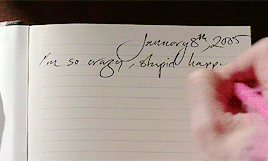 January 8th, 2005
I'm so crazy, stupid happ